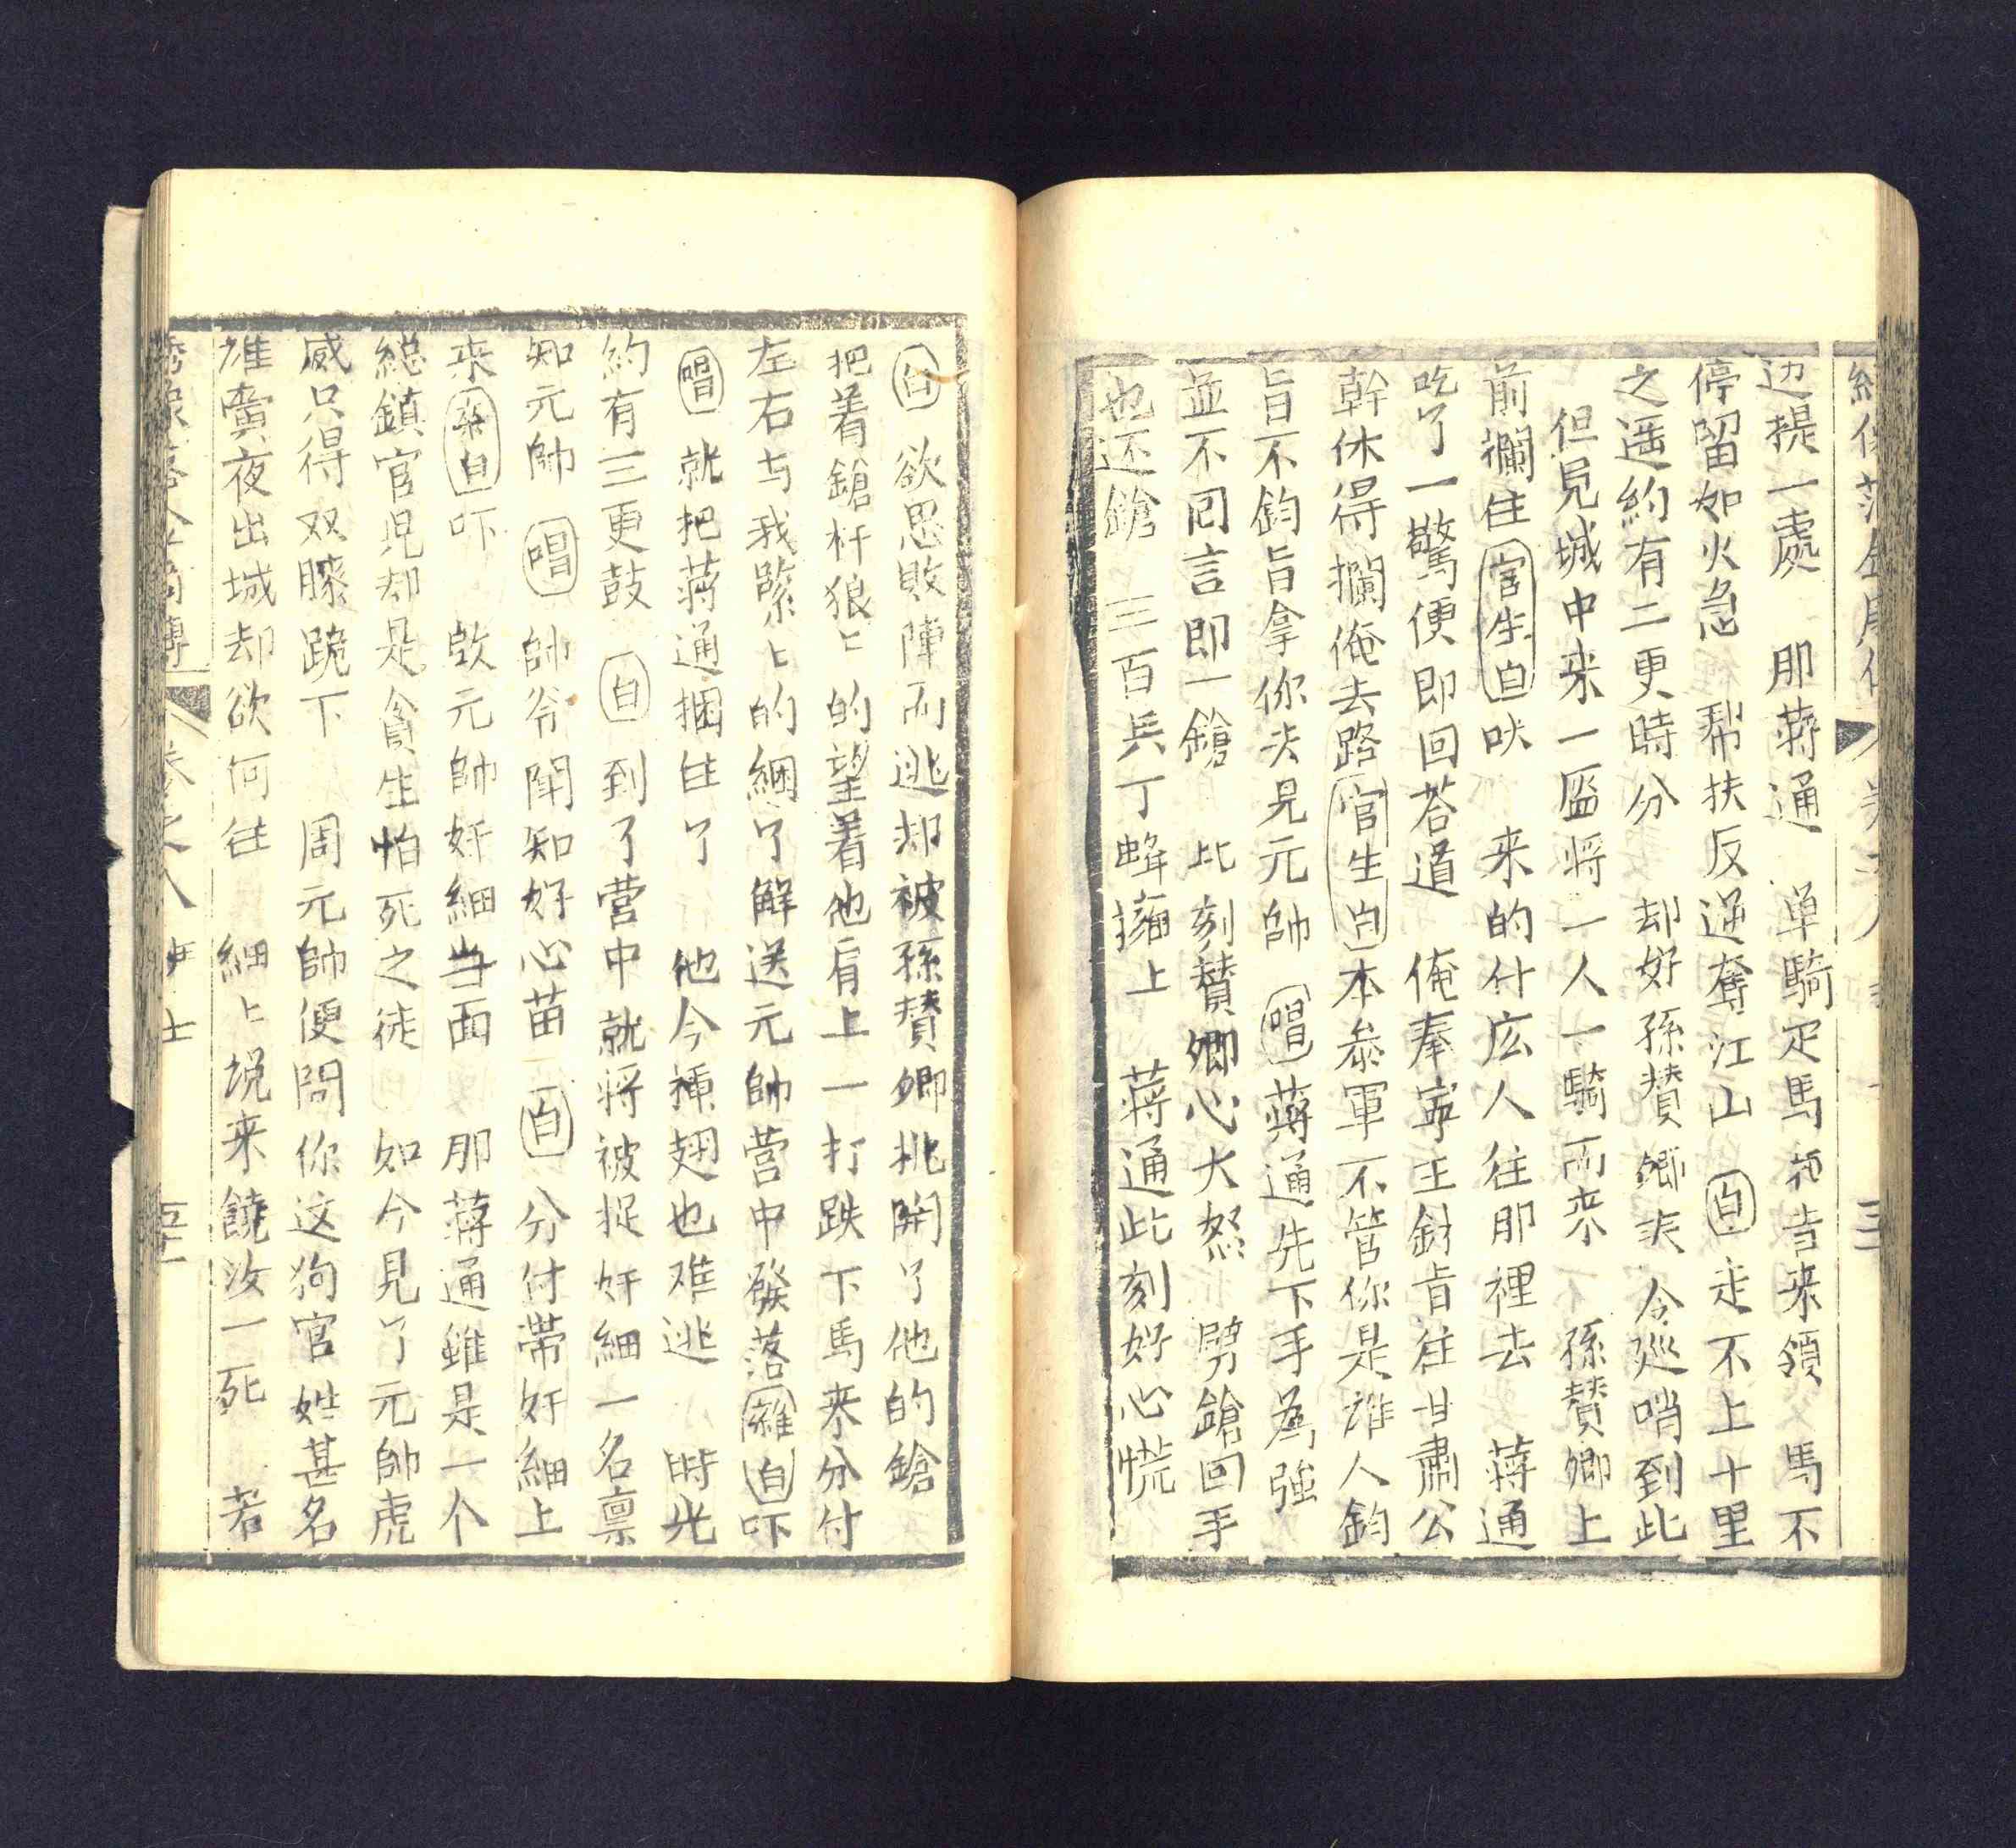 边提一處　那蔣通　单騎疋馬来領　馬不
停留如火急　帮扶反逆奪江山　白走不上十里
之遥約有二更時分　却好孫賛卿夫令廵哨到此
但見城中来一盔将一人一騎而来　孫賛卿上
前攔住官生白呔　来的什広人往那裡去　蔣通
吃了一驚便即回荅道　俺奉寧王鈞旨往甘肅公
幹休得攔俺去路官生白本叅軍不管你是誰人鈞
旨不鈞旨拿你去見元帥　唱蔣通先下手為強
並不回言即一鎗　此刻賛卿心大怒　劈鎗回手
也还鎗　三百兵丁蜂擁上　蔣通此刻好心慌
白　欲思敗陣而逃却被孫賛卿挑開了他的鎗
把着鎗杆狼匕的望着他肩上一打跌下馬来分付
左右与我緊匕的綑了解送元帥营中發落雜白吓
唱　就把蔣通捆住了　他今插翅也难逃　時光
約有三更鼓　白　到了营中就将被捉奸細一名禀
知元帥　唱　帥爷聞知好心苗　白　分付帯奸細上
来杂白吓　啟元帥奸細当面　那蔣通雖是一个
総鎮官児却是貪生怕死之徒　如今見了元帥虎
威只得双膝跪下　周元帥便問你这狗官姓甚名
誰夤夜出城却欲何往　細匕説来饒汝一死　若
卷之八